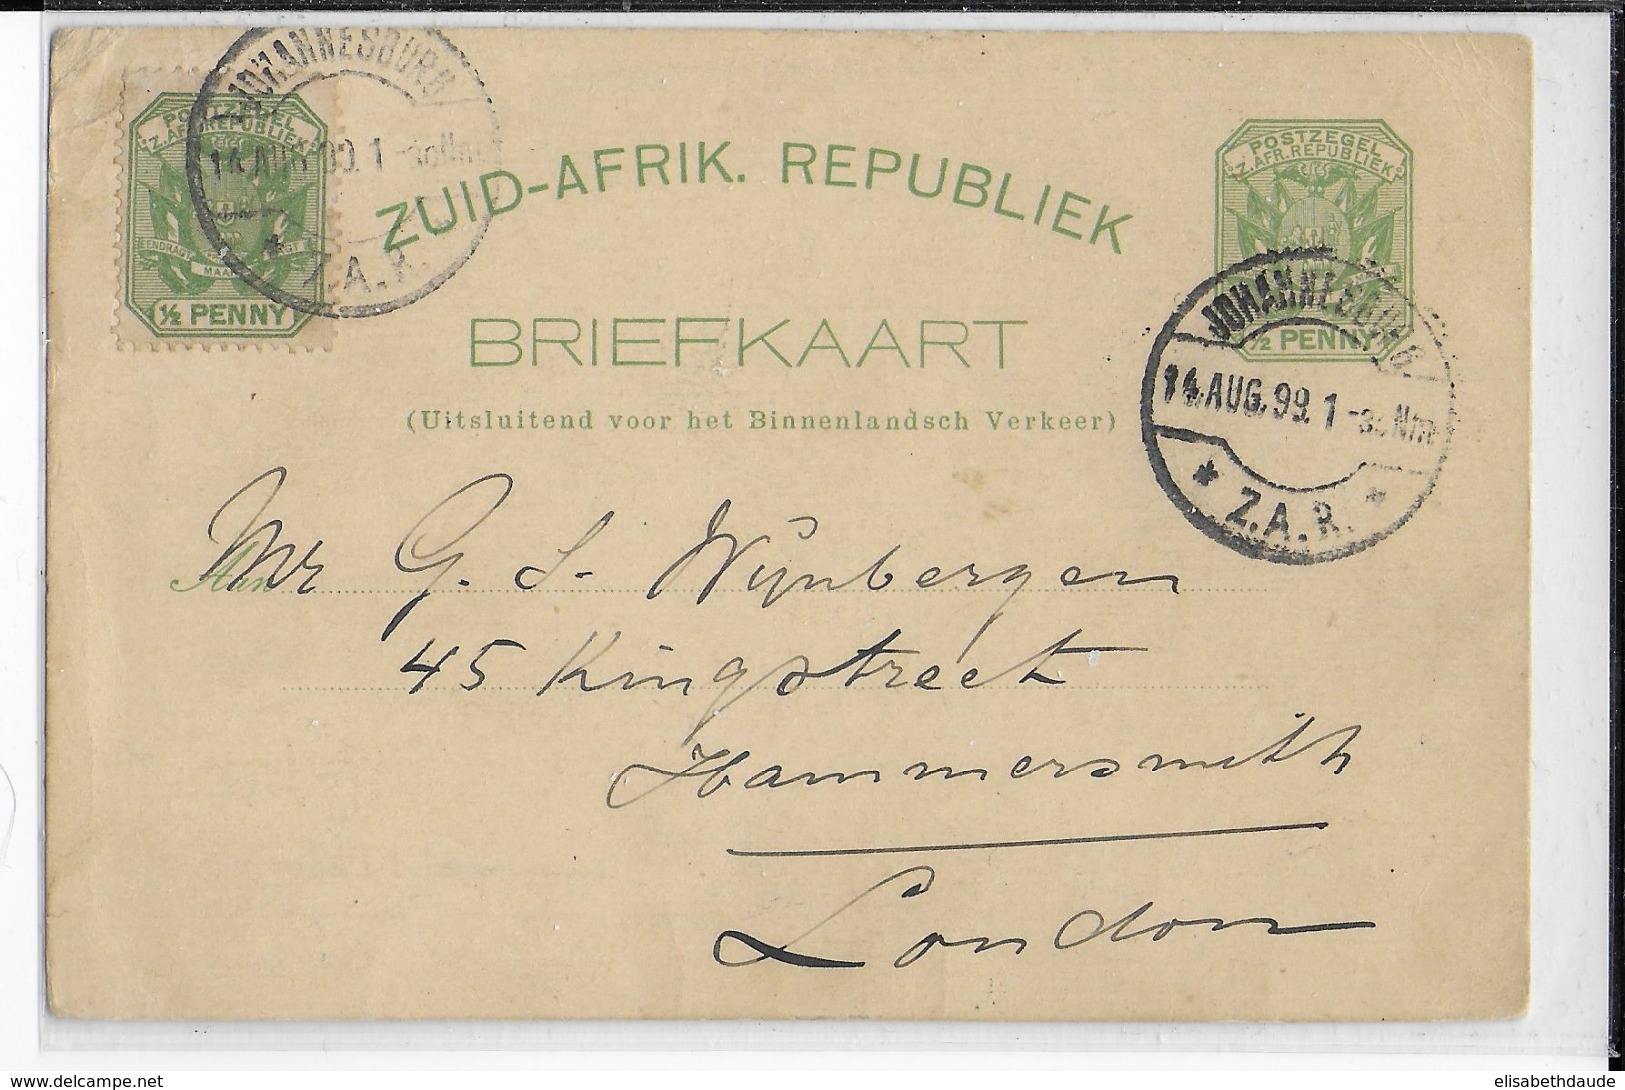 POSTZEGEL
Z.AFR.REPUBLIEK
EENDRAGT MAAKT
½ PENNY
JOHANNESBURG
14.AUG.99.1
* Z.A.R.
ZUID-AFRIK. REPUBLIEK
BRIEFKAART
(Uitsluitend voor het Binnenlandsch Verkeer)
POSTZEGEL
Z.AFR.REPUBLIEK
½ PENNY
JOHANNESBURG.
14.AUG.99.1-3 Nm
* Z.A.R. *
Aan
Mr G. S. Wijnbergen
45 Kingstreet
Hammersmith
London
www.delcampe.net
elisabethdaude